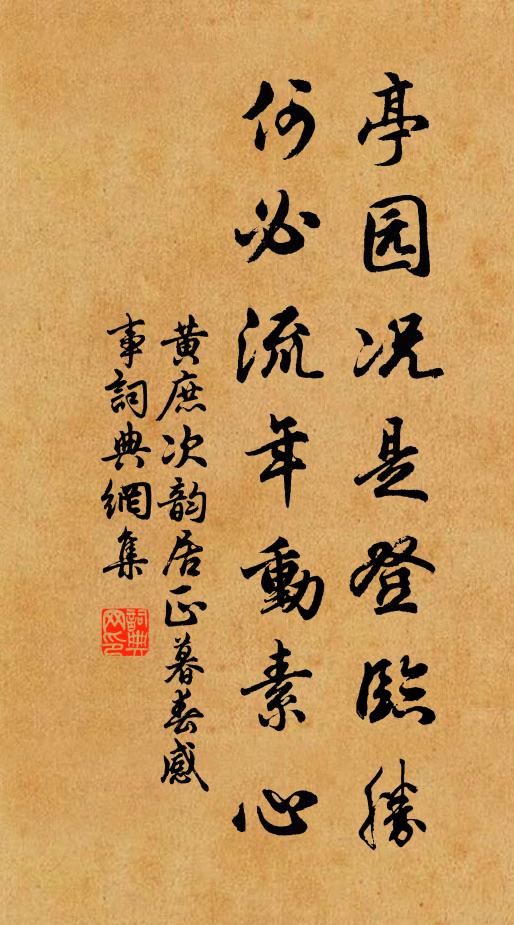 亭园况是登臨勝
何必流年動素心
黄庶次韵居正暮春感
事詞典網集
詞典
网印